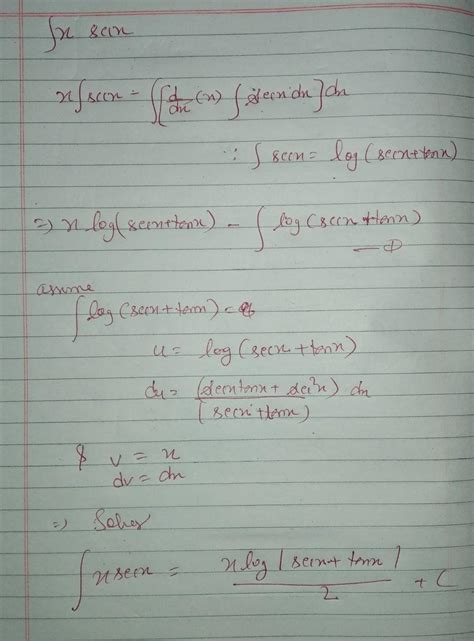 ∫x secx
x∫secx - ∫[d/dx (x) ∫secx dx] dx
∵ ∫ secx = log (secx+tanx)
⇒ x log(secx+tanx) - ∫ log(secx+tanx) —①
assume
∫ log (secx+tanx) =
u = log (secx + tanx)
du = (secxtanx + sec²x) dx / (secx+tanx)
& v = x
dv = dx
⇒ Solve
∫ x secx = x log |secx + tanx| / 2 + C